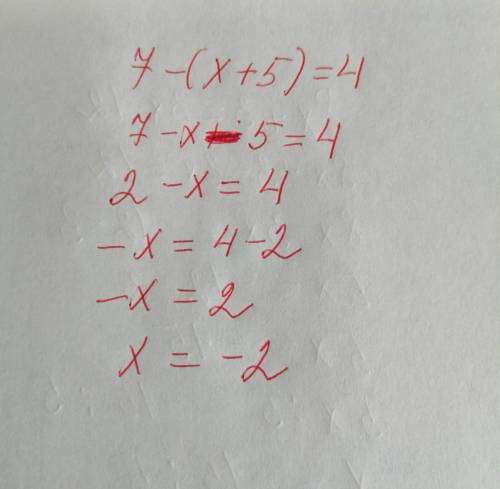 7-(x+5)=4
7-x-5=4
2-x=4
-x=4-2
-x=2
x=-2